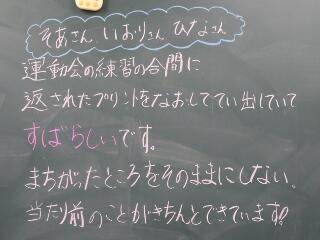 そあさん いおりさん ひなさん
運動会の練習の合間に
返されたプリントをなおしててい出していて
すばらしいです。
まちがったところをそのままにしない。
当たり前のことがきちんとできています!